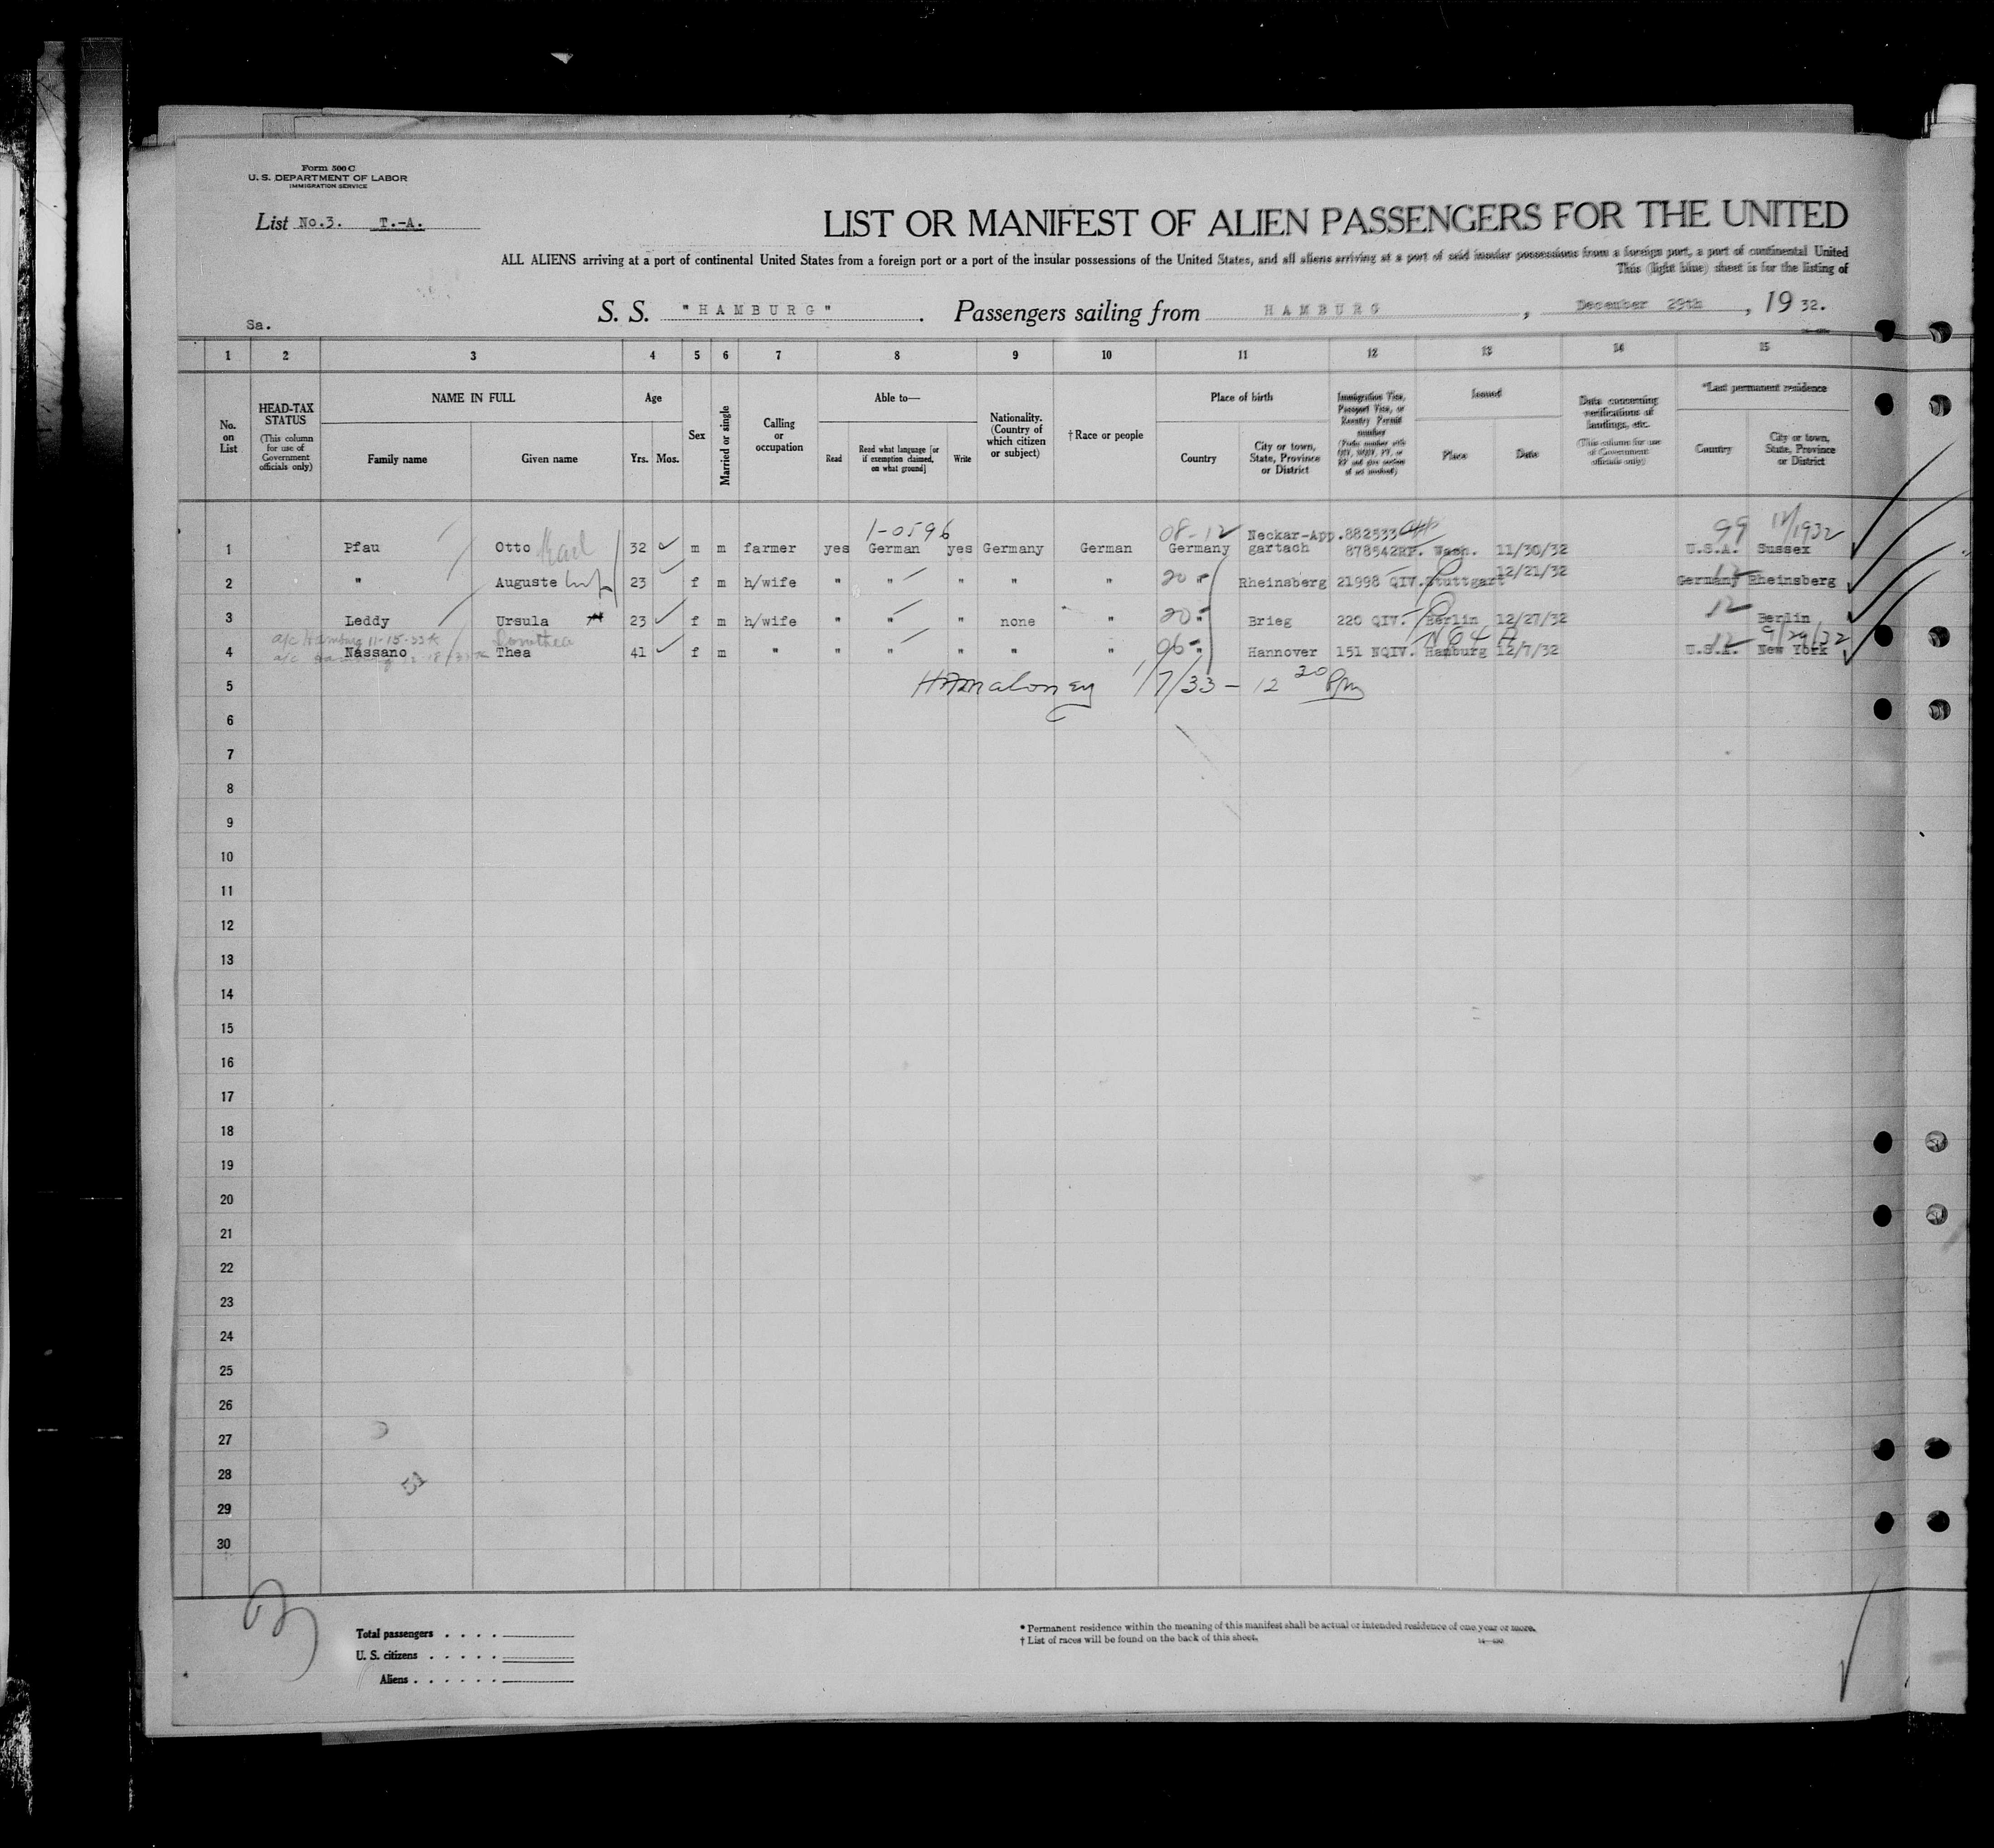 Form 500 C
U. S. DEPARTMENT OF LABOR
IMMIGRATION SERVICE
List No.3. T.-A.
LIST OR MANIFEST OF ALIEN PASSENGERS FOR THE UNITED
ALL ALIENS arriving at a port of continental United States from a foreign port or a part of the insular possessions of the United States, and all aliens arriving at a port of said insular possessions from a foreign port, a part of continental United
This (light blue) sheet is for the listing of
S. S. "HAMBURG" . Passengers sailing from HAMBURG , December 29th , 19 32.
Sa.
1 2 3 4 5 6 7 8 9 10 11 12 13 14 15
No. on List
HEAD-TAX STATUS (This column for use of Government officials only)
NAME IN FULL
Family name Given name
Age
Yrs. Mos.
Sex
Married or single
Calling or occupation
Able to—
Read Read what language [or if exemption claimed, on what ground] Write
Nationality. (Country of which citizen or subject)
† Race or people
Place of birth
Country City or town, State, Province or District
Immigration Visa, Passport Visa, or Reentry Permit number
Issued
Place Date
Data concerning verifications of landings, etc. (This column for use of Government officials only)
*Last permanent residence
Country City or town, State, Province or District
1-0596 08-12 99 12/1932
1 Pfau Otto Karl 32 m m farmer yes German yes Germany German Germany Neckar-gartach App.882533 878542RP. Wash. 11/30/32 U.S.A. Sussex
2 " Auguste 23 f h/wife m " " " " " 20 " Rheinsberg 21998 QIV. Stuttgart 12/21/32 12 Germany Rheinsberg
3 Leddy Ursula 23 f m h/wife " " " none " 20 " Brieg 220 QIV. Berlin 12/27/32 12 Berlin
a/c Hamburg 11-15-33 Dorothea N64 9/29/32
4 Nassano Thea 41 f m " " " " " " 06 " Hannover 151 NQIV. Hamburg 12/7/32 12 U.S.A. New York
5 H Maloney 1/7/33 - 12 20 Pm
6
7
8
9
10
11
12
13
14
15
16
17
18
19
20
21
22
23
24
25
26
27
28
29
30
51
Total passengers . . . .
U. S. citizens . . . . .
Aliens . . . . . .
* Permanent residence within the meaning of this manifest shall be actual or intended residence of one year or more.
† List of races will be found on the back of this sheet.